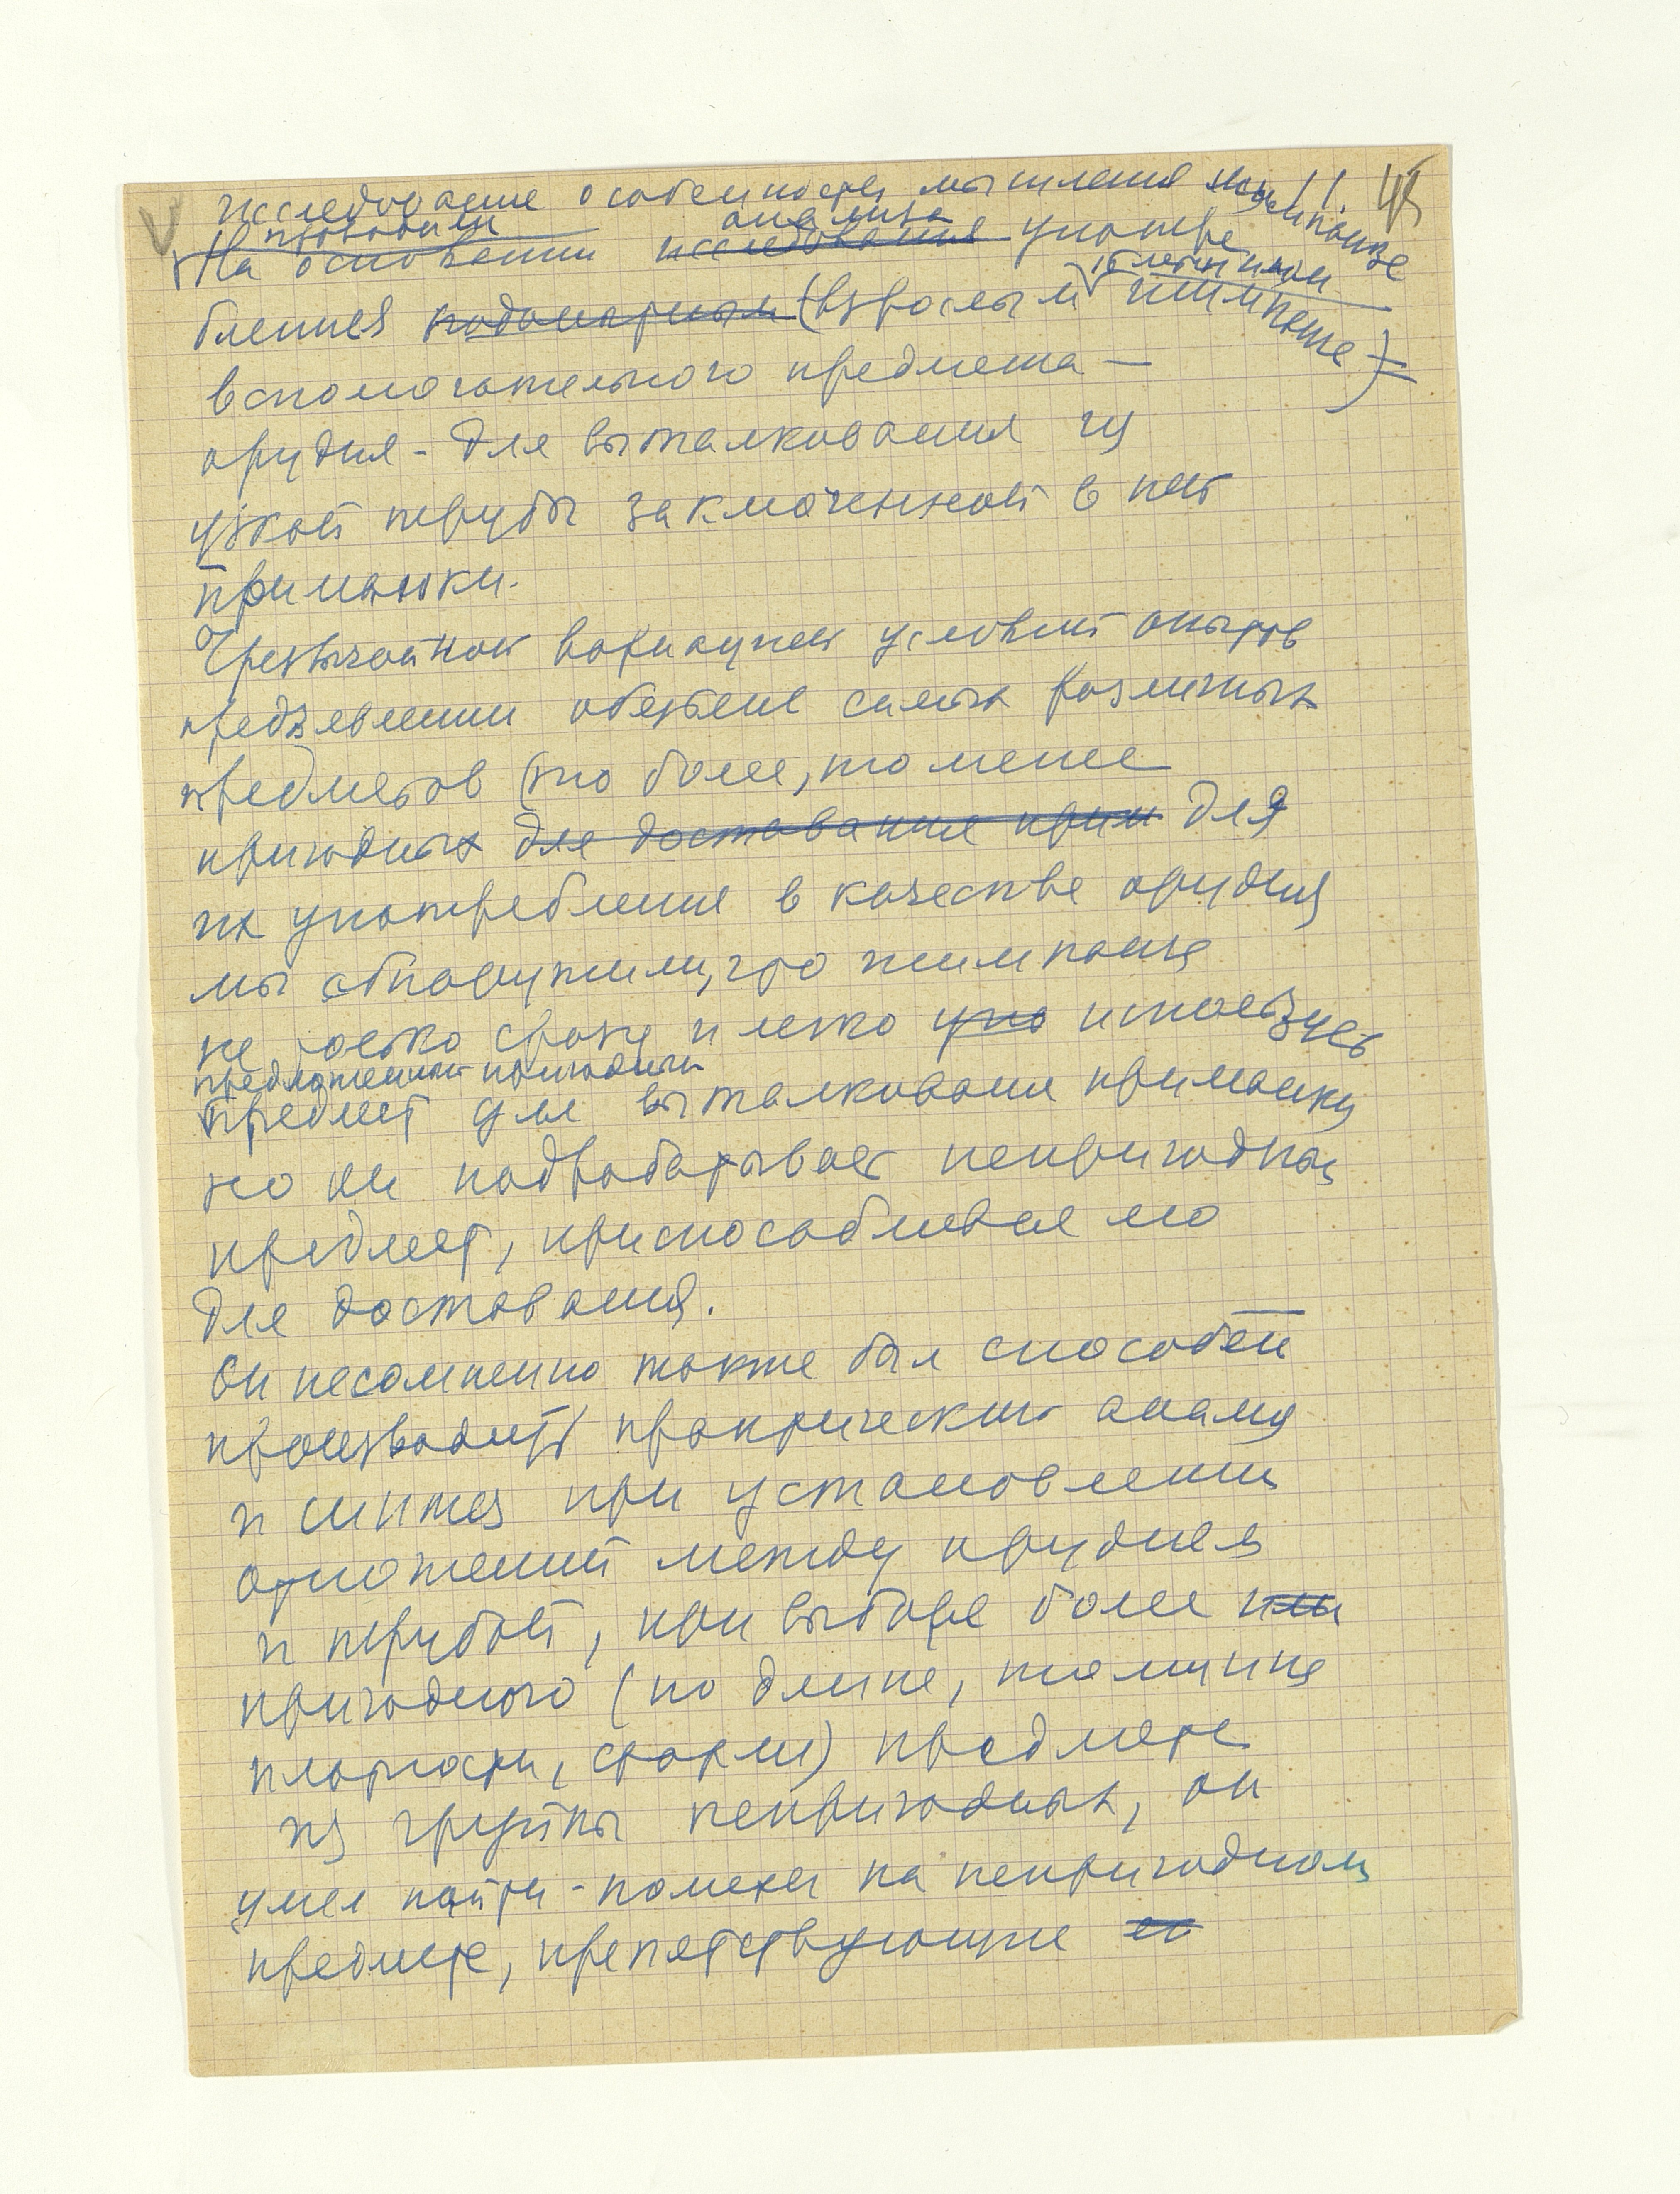 исследование особенностей мышления шимпанзе
проводили анализа
На основании исследования употре
бления подопытным (взрослым 16 летним шимпанзе)
вспомогательного предмета —
орудия - для выталкивания из
узкой трубы заключенной в ней
приманки.
Чрезвычайной вариации условий опытов
предъявлении обезьяне самых различных
предметов (то более, то менее
пригодных для доставания прим для
их употребления в качестве орудия
мы обнаружили, что шимпанзе
не только сразу и легко упо использует
предложенный пригодный
предмет для выталкивания приманки
но он подрабатывает непригодный
предмет, приспосабливая его
для доставания.
Он несомненно также был способен
производить практический анализ
и синтез при установлении
отношений между орудием
и трубой, при выборе более или
пригодного (по длине, толщине
плотности, форме) предмета
из группы непригодных, он
умел найти - помехи на непригодном
предмете, препятствующие ее